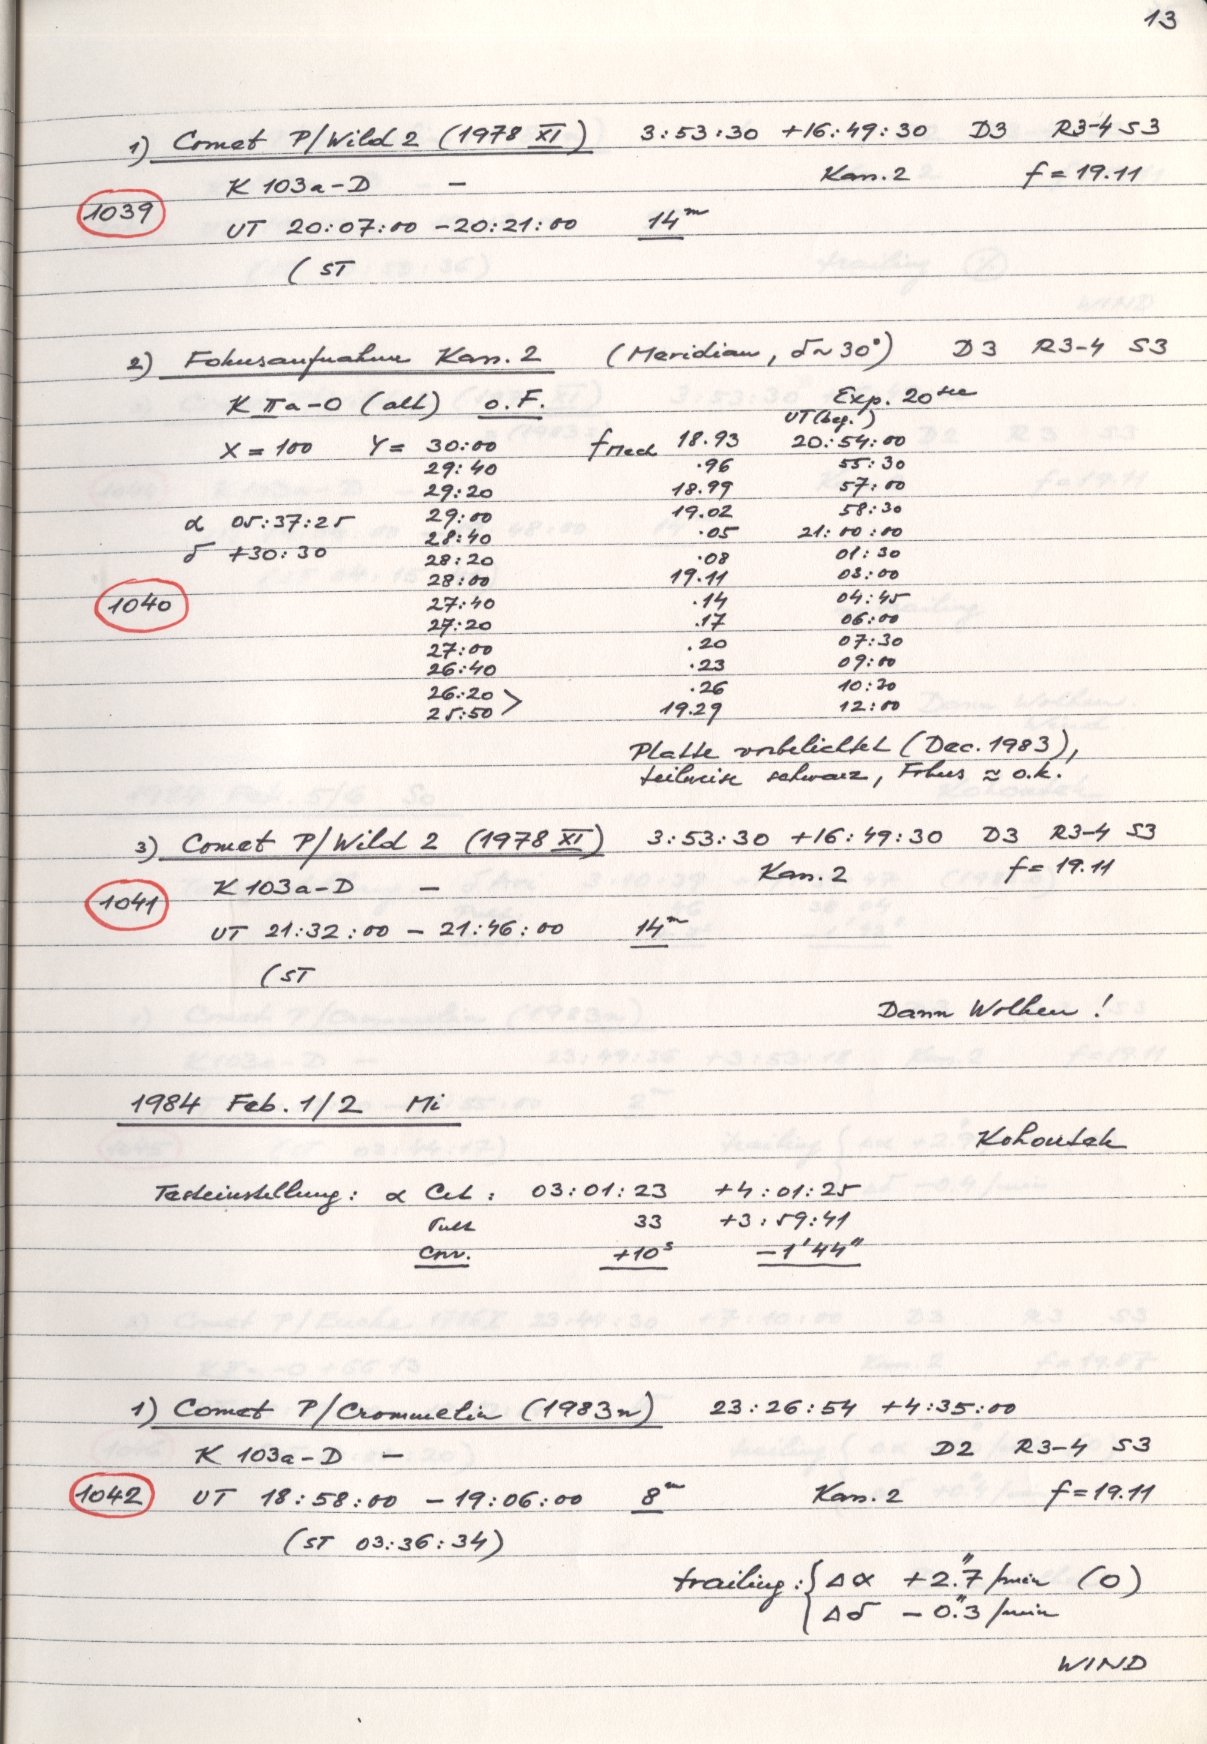 13
1) Comet P/Wild 2 (1978 XI) 3:53:30 +16:49:30 D3 R3-4 S3
K 103a-D — Kass.2 f = 19.11
1039
UT 20:07:00 - 20:21:00 14m
(ST
2) Fokusaufnahme Kass. 2 (Meridian, δ ~ 30°) D3 R3-4 S3
K IIa-O (alt) o.F. Exp. 20 sec
UT (beg.)
X = 100 Y = 30:00 f Mech 18.93 20:54:00
29:40 .96 55:30
29:20 18.99 57:00
α 05:37:25 29:00 19.02 58:30
28:40 .05 21:00:00
δ +30:30 28:20 .08 01:30
28:00 19.11 03:00
1040 27:40 .14 04:45
27:20 .17 06:00
27:00 .20 07:30
26:40 .23 09:00
26:20 .26 10:30
25:50 > 19.29 12:00
Platte vorbelichtet (Dec. 1983),
teilweise schwarz, Fokus ≈ o.k.
3) Comet P/Wild 2 (1978 XI) 3:53:30 +16:49:30 D3 R3-4 S3
K 103a-D — Kass.2 f = 19.11
1041
UT 21:32:00 - 21:46:00 14m
(ST
Dann Wolken!
1984 Feb. 1/2 Mi
Kohoutek
Testeinstellung: α Cet: 03:01:23 +4:01:25
33 +3:59:41
Corr. +10s -1'44"
1) Comet P/Crommelin (1983n) 23:26:54 +4:35:00
K 103a-D — D2 R3-4 S3
1042 UT 18:58:00 - 19:06:00 8m Kass.2 f = 19.11
(ST 03:36:34)
trailing: { Δα +2."7/min (0)
Δδ -0."3/min
WIND